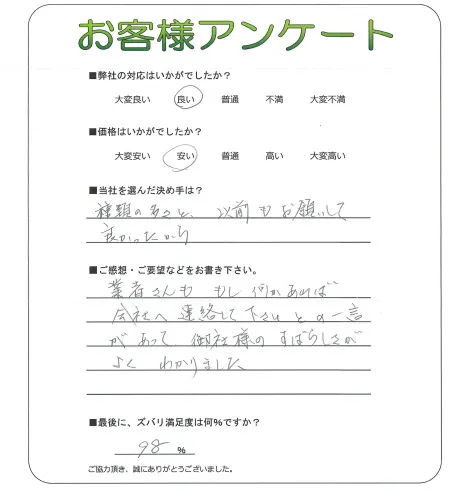 お客様アンケート
■弊社の対応はいかがでしたか？
大変良い 良い 普通 不満 大変不満
■価格はいかがでしたか？
大変安い 安い 普通 高い 大変高い
■当社を選んだ決め手は？
種類の多さと、以前もお願いして
良かったから
■ご感想・ご要望などをお書き下さい。
業者さんも もし何かあれば
会社へ連絡して下さいとの一言
があって 御社様のすばらしさが
よく わかりました
■最後に、ズバリ満足度は何%ですか？
98 %
ご協力頂き、誠にありがとうございました。